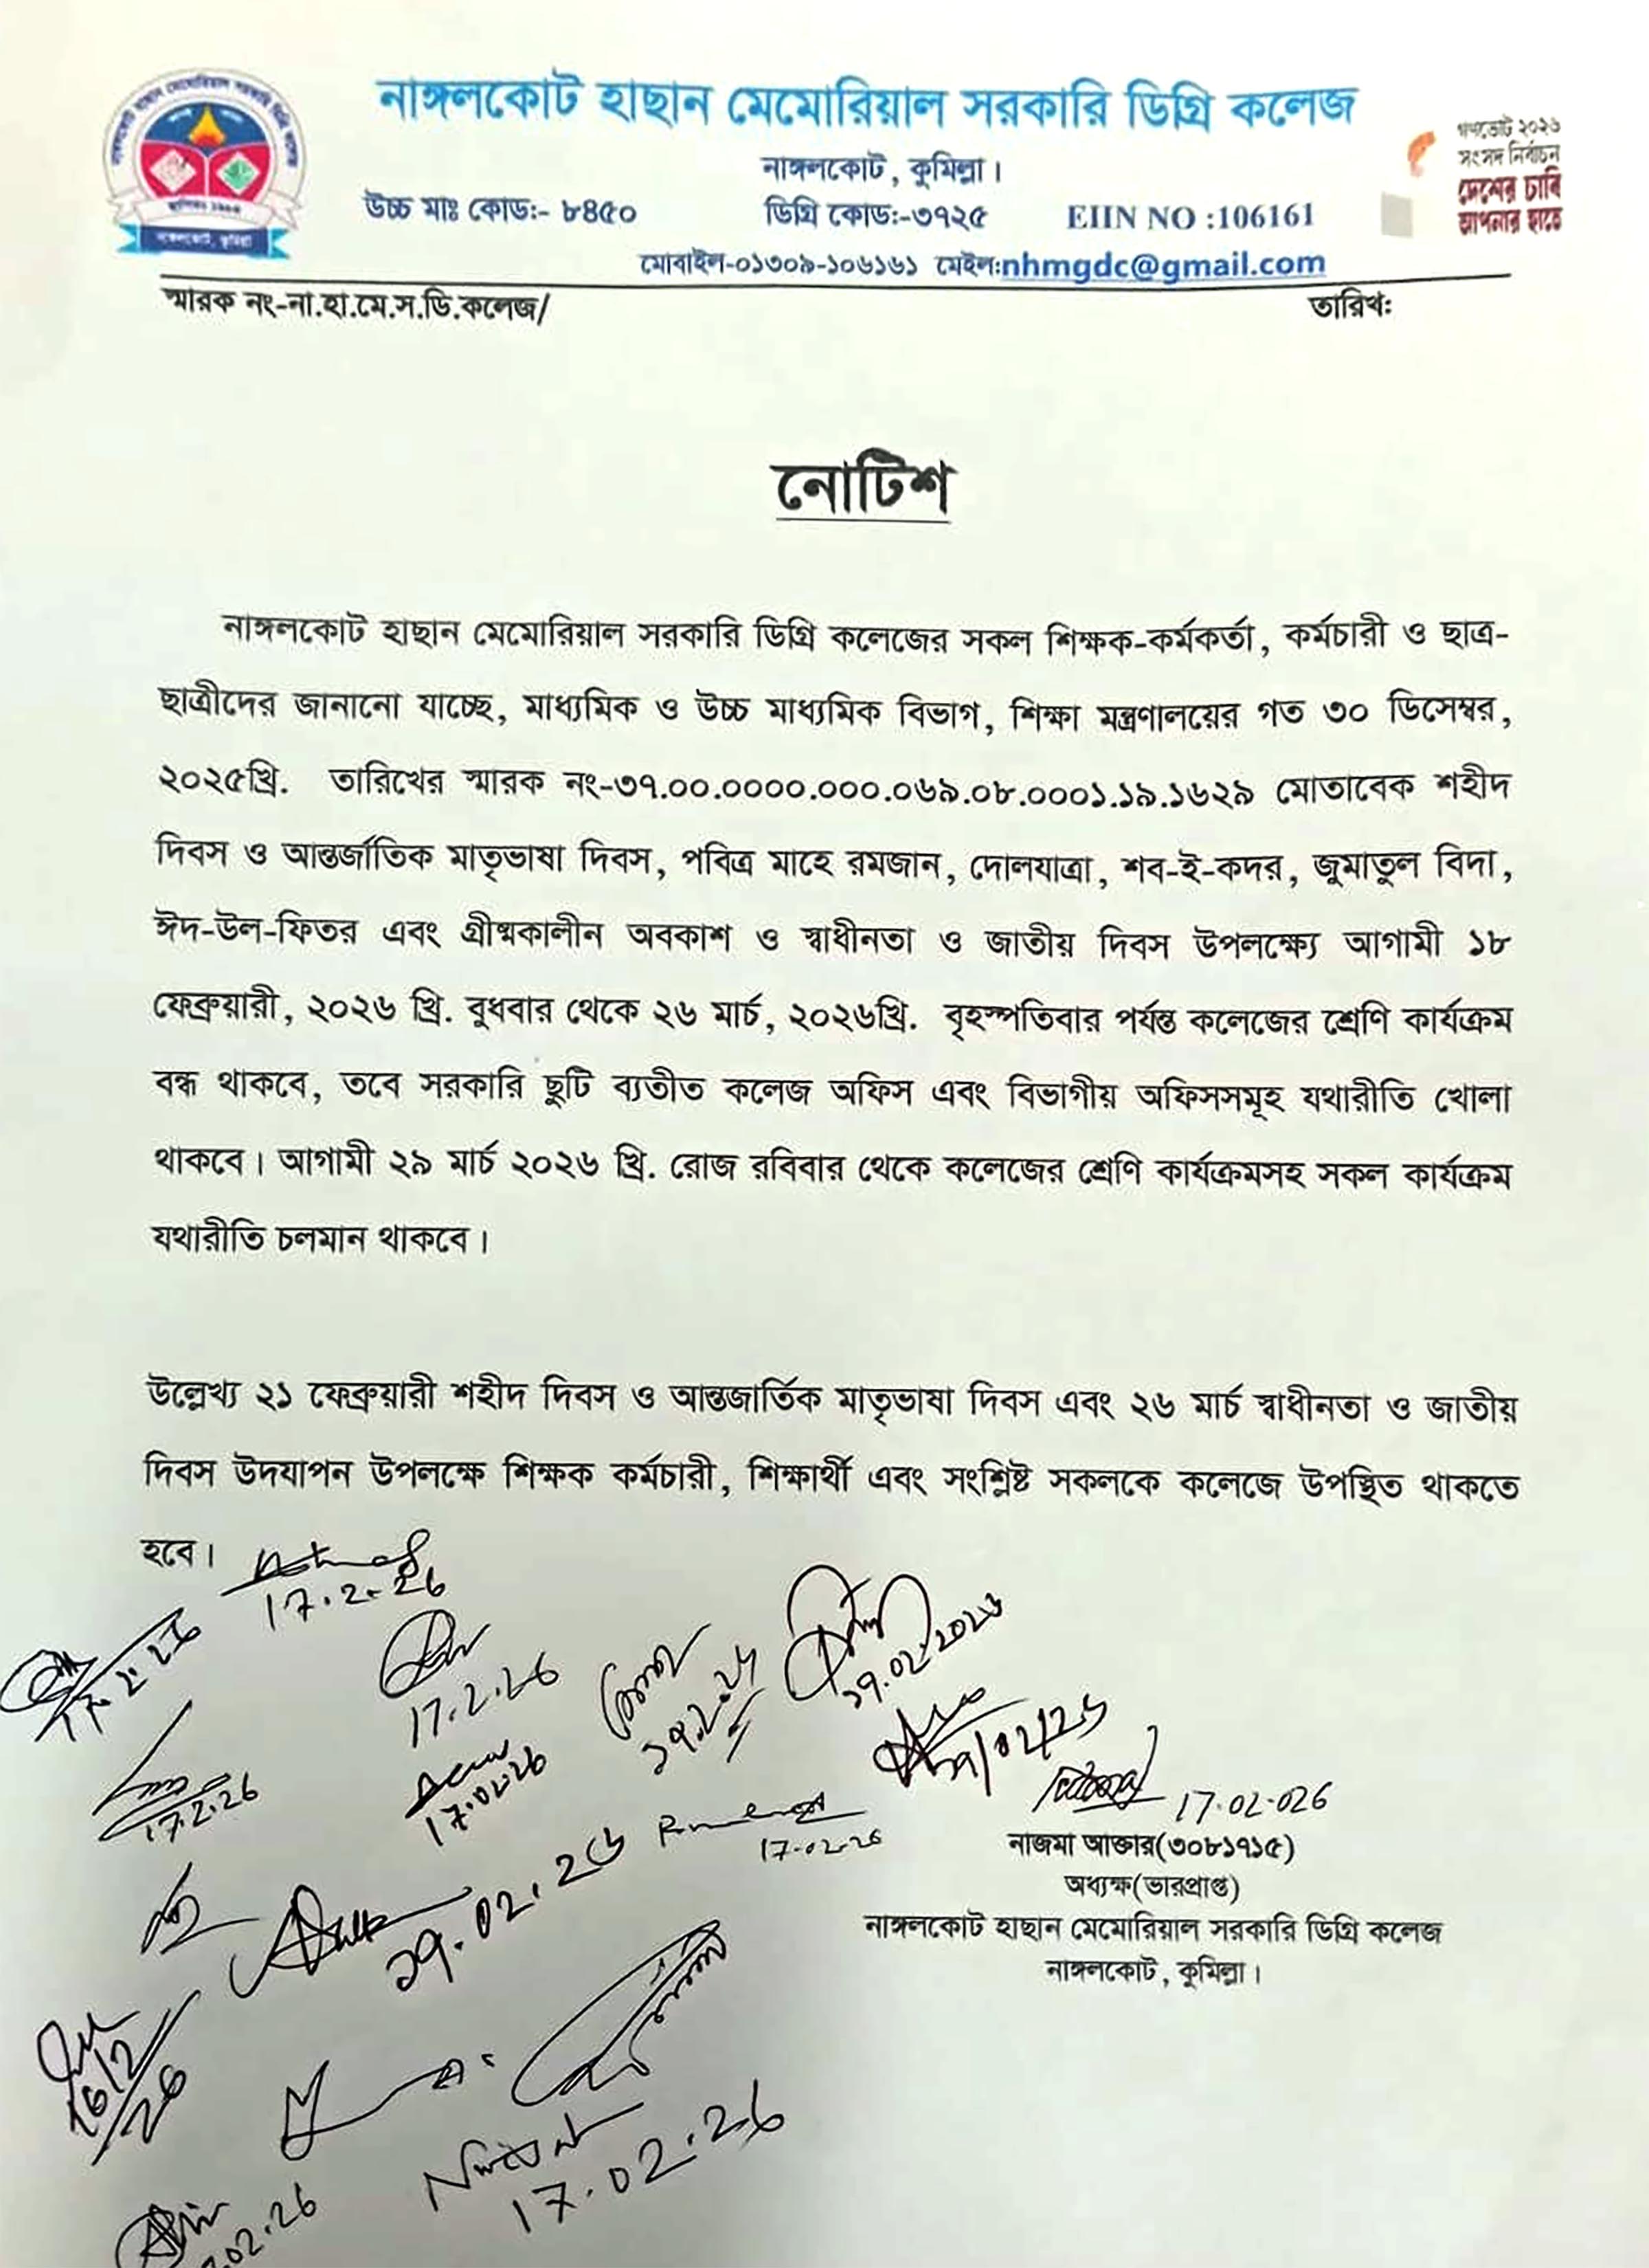 নাঙ্গলকোট হাছান মেমোরিয়াল সরকারি ডিগ্রি কলেজ
নাঙ্গলকোট, কুমিল্লা।
উচ্চ মাঃ কোড:- ৮৪৫০ ডিগ্রি কোড:-৩৭২৫ EIIN NO :106161
মোবাইল-০১৩০৯-১০৬১৬১ মেইল:nhmgdc@gmail.com
গণভোট ২০২৬
সংসদ নির্বাচন
দেশের চাবি
আপনার হাতে
নাঙ্গলকোট, কুমিল্লা
স্মারক নং-না.হা.মে.স.ডি.কলেজ/ তারিখ:
নোটিশ
নাঙ্গলকোট হাছান মেমোরিয়াল সরকারি ডিগ্রি কলেজের সকল শিক্ষক-কর্মকর্তা, কর্মচারী ও ছাত্র-
ছাত্রীদের জানানো যাচ্ছে, মাধ্যমিক ও উচ্চ মাধ্যমিক বিভাগ, শিক্ষা মন্ত্রণালয়ের গত ৩০ ডিসেম্বর,
২০২৫খ্রি. তারিখের স্মারক নং-৩৭.০০.০০০০.০০০.০৬৯.০৮.০০০১.১৯.১৬২৯ মোতাবেক শহীদ
দিবস ও আন্তর্জাতিক মাতৃভাষা দিবস, পবিত্র মাহে রমজান, দোলযাত্রা, শব-ই-কদর, জুমাতুল বিদা,
ঈদ-উল-ফিতর এবং গ্রীষ্মকালীন অবকাশ ও স্বাধীনতা ও জাতীয় দিবস উপলক্ষ্যে আগামী ১৮
ফেব্রুয়ারী, ২০২৬ খ্রি. বুধবার থেকে ২৬ মার্চ, ২০২৬খ্রি. বৃহস্পতিবার পর্যন্ত কলেজের শ্রেণি কার্যক্রম
বন্ধ থাকবে, তবে সরকারি ছুটি ব্যতীত কলেজ অফিস এবং বিভাগীয় অফিসসমূহ যথারীতি খোলা
থাকবে। আগামী ২৯ মার্চ ২০২৬ খ্রি. রোজ রবিবার থেকে কলেজের শ্রেণি কার্যক্রমসহ সকল কার্যক্রম
যথারীতি চলমান থাকবে।
উল্লেখ্য ২১ ফেব্রুয়ারী শহীদ দিবস ও আন্তজার্তিক মাতৃভাষা দিবস এবং ২৬ মার্চ স্বাধীনতা ও জাতীয়
দিবস উদযাপন উপলক্ষে শিক্ষক কর্মচারী, শিক্ষার্থী এবং সংশ্লিষ্ট সকলকে কলেজে উপস্থিত থাকতে
হবে।
17.2.26
17.2.26
17.2.26
১৭.২.২৬
১৭.০২.২০২৬
17.2.26
17.02.26
17.02.26
17.02.026
১৭.০২.২৬
17.02.26
নাজমা আক্তার(৩০৮১৭১৫)
অধ্যক্ষ(ভারপ্রাপ্ত)
নাঙ্গলকোট হাছান মেমোরিয়াল সরকারি ডিগ্রি কলেজ
নাঙ্গলকোট, কুমিল্লা।